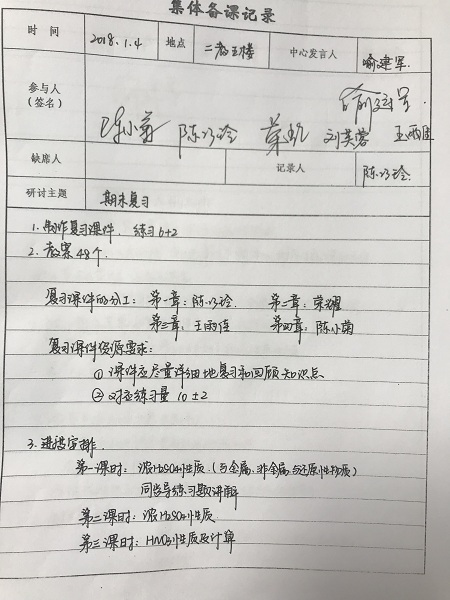 集体备课记录
时间 2018.1.4 地点 二教五楼 中心发言人 喻建军
参与人
(签名)
陈小菊 陈巧玲 刘芙蓉 王雨佳
缺席人 记录人 陈巧玲
研讨主题 期末复习
1. 制作复习课件, 练习6+2
2. 教案48个.
复习课件的分工: 第一章: 陈巧玲. 第二章: 荣耀
第三章: 王雨佳 第四章: 陈小菊
复习课件资源要求:
① 课件应尽量详细地复习和回顾知识点
② 对应练习量 10±2
3. 进度安排.
第一课时: 浓H₂SO₄性质. (与金属、非金属、与还原性物质)
同步导练习题讲解
第二课时: 浓H₂SO₄性质
第三课时: HNO₃性质及计算